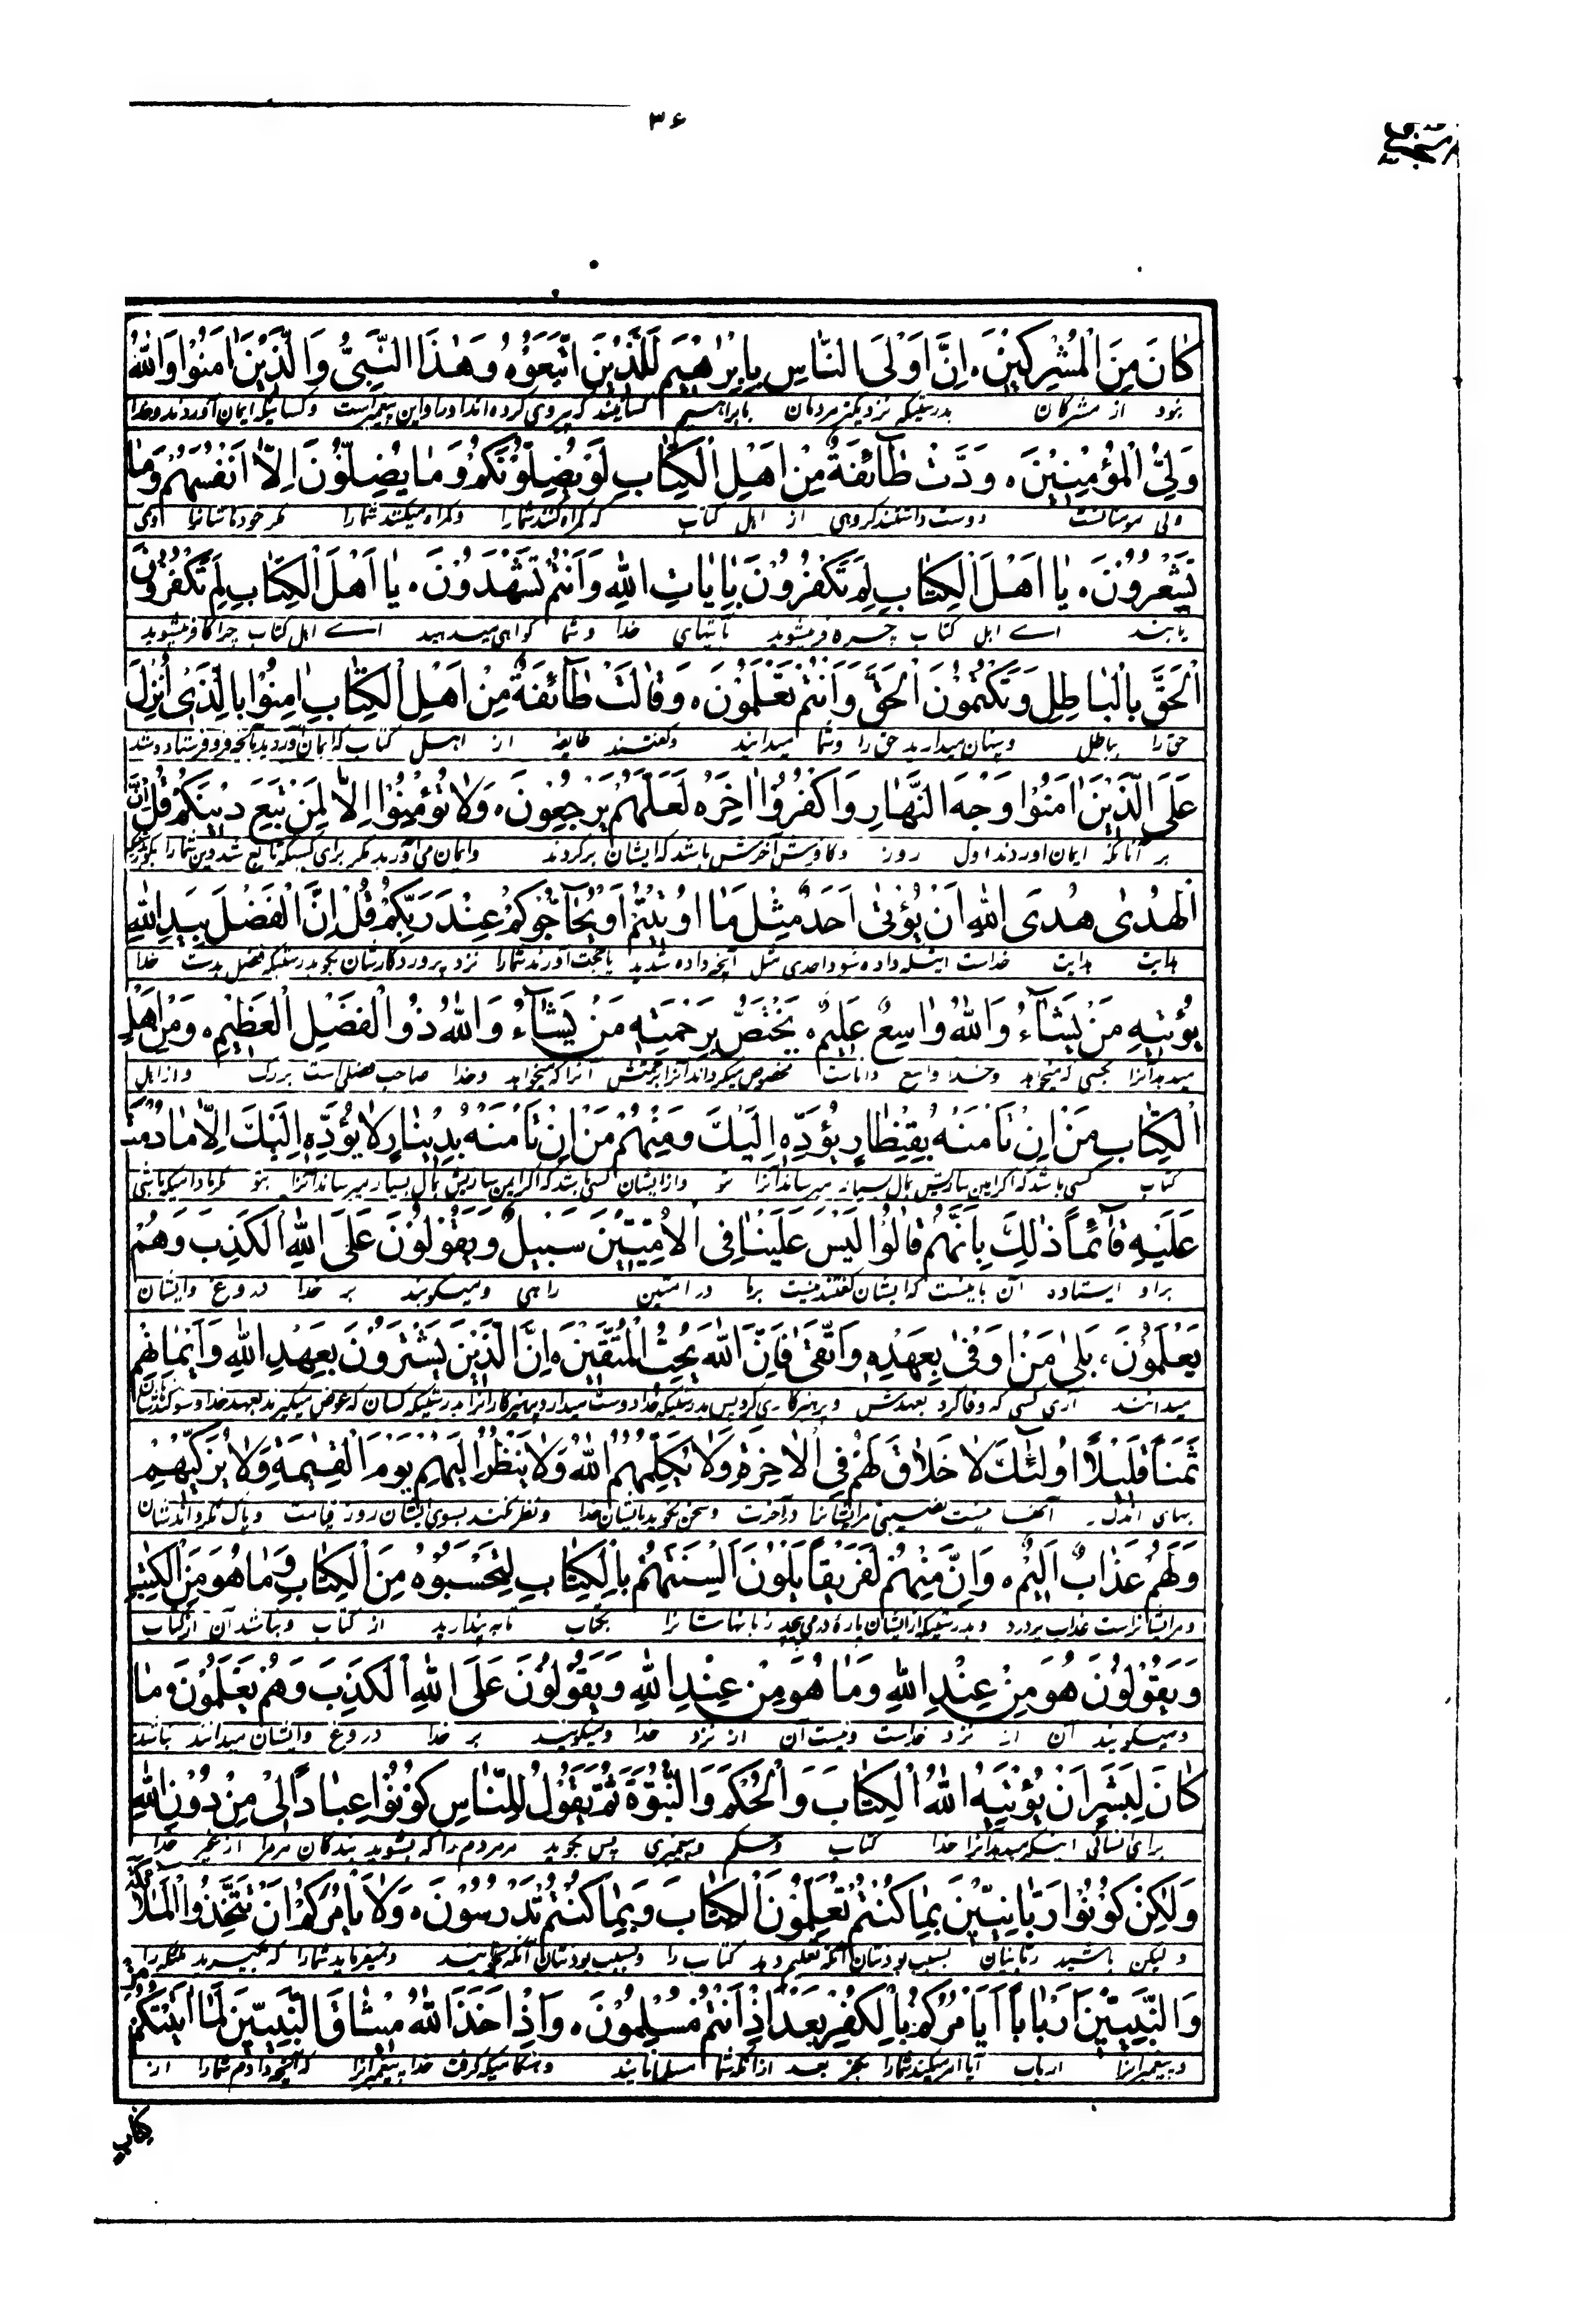 ۳۶
كَانَ مِنَ الْمُشْرِكِينَ. اِنَّ اَوْلَى النَّاسِ بِاِبْرٰهِيمَ لَلَّذِينَ اتَّبَعُوهُ وَهٰذَا النَّبِىُّ وَالَّذِينَ اٰمَنُوا وَاللّٰهُ
نبود از مشرکان بدرستیکه نزدیکتر مردمان بابراهیم کسانیند که پیروی کرده‌اند او را و این پیغمبر است و کسانیکه ایمان آوردند و خدا
وَلِىُّ الْمُؤْمِنِينَ. وَدَّتْ طٰآئِفَةٌ مِنْ اَهْلِ الْكِتٰابِ لَوْ يُضِلُّونَكُمْ وَمٰا يُضِلُّونَ اِلّٰا اَنْفُسَهُمْ وَمٰا
ولی مومنانست دوست داشتند گروهی از اهل کتاب که گمراه کنند شما را و گمراه نمیکنند شما را مگر خودهاشانرا
يَشْعُرُونَ. يٰا اَهْلَ الْكِتٰابِ لِمَ تَكْفُرُونَ بِاٰيٰاتِ اللّٰهِ وَاَنْتُمْ تَشْهَدُونَ. يٰا اَهْلَ الْكِتٰابِ لِمَ تَكْفُرُونَ
یابند اے اهل کتاب چرا کافر میشوید بآیتهای خدا و شما گواهی میدهید اے اهل کتاب چرا کافر میشوید
الْحَقَّ بِالْبٰاطِلِ وَتَكْتُمُونَ الْحَقَّ وَاَنْتُمْ تَعْلَمُونَ. وَقٰالَتْ طٰآئِفَةٌ مِنْ اَهْلِ الْكِتٰابِ اٰمِنُوا بِالَّذِى اُنْزِلَ
حق را بباطل و پنهان میدارید حق را و شما میدانید و گفتند طایفه از اهل کتاب که ایمان آورید بآنچه فرو فرستاده شد
عَلَى الَّذِينَ اٰمَنُوا وَجْهَ النَّهٰارِ وَاكْفُرُوا اٰخِرَهُ لَعَلَّهُمْ يَرْجِعُونَ. وَلٰا تُؤْمِنُوا اِلّٰا لِمَنْ تَبِعَ دِينَكُمْ قُلْ اِنَّ
بر آنانکه ایمان آوردند اول روز و کافر آخرش باشد که ایشان برگردند و ایمان می آورید مگر برای کسیکه تابع شد دین شما را
الْهُدٰى هُدَى اللّٰهِ اَنْ يُؤْتٰى اَحَدٌ مِثْلَ مٰا اُوتِيتُمْ اَوْ يُحٰآجُّوكُمْ عِنْدَ رَبِّكُمْ قُلْ اِنَّ الْفَضْلَ بِيَدِ اللّٰهِ
هدایت هدایت خداست اینکه داده شود احدی مثل آنچه داده شدید یا حجت آورند شما را نزد پروردگارشان بگو بدرستیکه فضل بدست خدا
يُؤْتِيهِ مَنْ يَشٰآءُ وَاللّٰهُ وٰاسِعٌ عَلِيمٌ. يَخْتَصُّ بِرَحْمَتِهِ مَنْ يَشٰآءُ وَاللّٰهُ ذُوالْفَضْلِ الْعَظِيمِ. وَمِنْ اَهْلِ
میدهد آنرا بکسی که میخواهد و خدا واسع داناست مخصوص میگرداند آنرا برحمتش آنرا که میخواهد و خدا صاحب فضلی است بزرگ و از اهل
الْكِتٰابِ مَنْ اِنْ تَاْمَنْهُ بِقِنْطٰارٍ يُؤَدِّهِ اِلَيْكَ وَمِنْهُمْ مَنْ اِنْ تَاْمَنْهُ بِدِينٰارٍ لٰا يُؤَدِّهِ اِلَيْكَ اِلّٰا مٰا دُمْتَ
کتاب کسی باشد که اگر امین سازیش بمال بسیار میرساند آنرا بتو و از ایشان کسی باشد که اگر امین سازیش بمال بسیار میرساند آنرا بتو مگر مادامیکه باشی
عَلَيْهِ قٰآئِمًا ذٰلِكَ بِاَنَّهُمْ قٰالُوا لَيْسَ عَلَيْنٰا فِى الْاُمِّيِّينَ سَبِيلٌ وَيَقُولُونَ عَلَى اللّٰهِ الْكَذِبَ وَهُمْ
براو ایستاده آن باینست که ایشان گفتند نیست برما در امیین راهی و میگویند بر خدا دروغ و ایشان
يَعْلَمُونَ. بَلٰى مَنْ اَوْفٰى بِعَهْدِهِ وَاتَّقٰى فَاِنَّ اللّٰهَ يُحِبُّ الْمُتَّقِينَ. اِنَّ الَّذِينَ يَشْتَرُونَ بِعَهْدِ اللّٰهِ وَاَيْمٰانِهِمْ
میدانند آری کسی که وفا کرد بعهدش و پرهیزکاری کرد پس بدرستیکه خدا دوست میدارد پرهیزکارانرا بدرستیکه کسان که عوض میگیرند بعهد خدا و سوگندشان
ثَمَنًا قَلِيلًا اُولٰئِكَ لٰا خَلٰاقَ لَهُمْ فِى الْاٰخِرَةِ وَلٰا يُكَلِّمُهُمُ اللّٰهُ وَلٰا يَنْظُرُ اِلَيْهِمْ يَوْمَ الْقِيٰمَةِ وَلٰا يُزَكِّيهِمْ
بهای اندک نیست نصیبی مر ایشانرا در آخرت و سخن نگوید بایشان خدا و نظر نکند بسوی ایشان روز قیامت و پاک نگرداندشان
وَلَهُمْ عَذٰابٌ اَلِيمٌ. وَاِنَّ مِنْهُمْ لَفَرِيقًا يَلْوُنَ اَلْسِنَتَهُمْ بِالْكِتٰابِ لِتَحْسَبُوهُ مِنَ الْكِتٰابِ وَمٰا هُوَ مِنَ الْكِتٰبِ
و مر ایشانراست عذاب پر درد و بدرستیکه از ایشان پارهٔ در می پیچد زبانهاشانرا بکتاب تا بپندارید از کتاب و نباشد آن از کتاب
وَيَقُولُونَ هُوَ مِنْ عِنْدِ اللّٰهِ وَمٰا هُوَ مِنْ عِنْدِ اللّٰهِ وَيَقُولُونَ عَلَى اللّٰهِ الْكَذِبَ وَهُمْ يَعْلَمُونَ وَمٰا
و میگویند آن از نزد خداست و نیست آن از نزد خدا و میگویند بر خدا دروغ و ایشان میدانند نباشد
كٰانَ لِبَشَرٍ اَنْ يُؤْتِيَهُ اللّٰهُ الْكِتٰابَ وَالْحُكْمَ وَالنُّبُوَّةَ ثُمَّ يَقُولُ لِلنّٰاسِ كُونُوا عِبٰادًا لِى مِنْ دُونِ اللّٰهِ
برای انسانی اینکه میدهد آنرا خدا کتاب و حکم و پیغمبری پس بگوید مر مردم را که بشوید بندگان مر مرا از غیر خدا
وَلٰكِنْ كُونُوا رَبّٰانِيِّينَ بِمٰا كُنْتُمْ تُعَلِّمُونَ الْكِتٰابَ وَبِمٰا كُنْتُمْ تَدْرُسُونَ. وَلٰا يَاْمُرَكُمْ اَنْ تَتَّخِذُوا الْمَلٰائِكَةَ
و لیکن باشید ربانیان بسبب بودنتان آنکه تعلیم دهید کتاب را و بسبب بودنتان آنکه و نمیفرماید شما را که بگیرید ملائکه را
وَالنَّبِيِّينَ اَرْبٰابًا اَيَاْمُرُكُمْ بِالْكُفْرِ بَعْدَ اِذْ اَنْتُمْ مُسْلِمُونَ. وَاِذْ اَخَذَ اللّٰهُ مِيثٰاقَ النَّبِيِّينَ لَمٰا اٰتَيْتُكُمْ مِنْ
و پیغمبرانرا ارباب آیا امر میکند شما را بکفر بعد از آنکه شما مسلمانانید و هنگامیکه گرفت خدا پیغمبرانرا که آنچه دادم شما را از
كِتٰابٍ